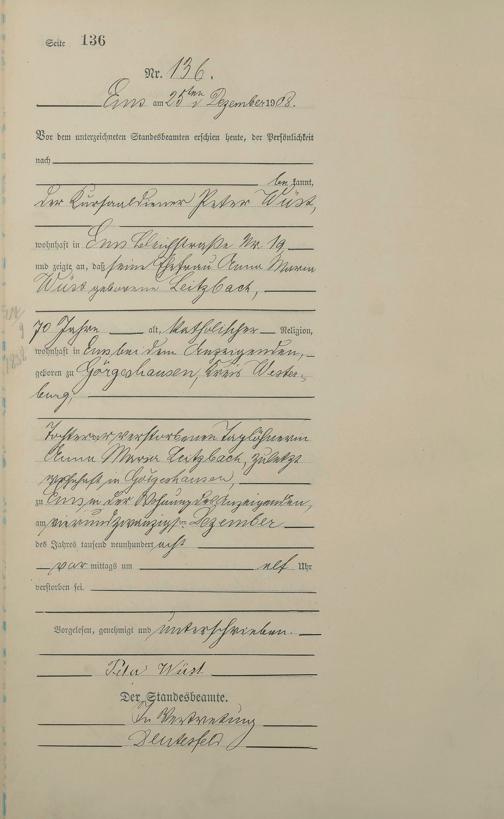 Seite 136
Nr. 136.
Ems am 25ten Dezember 1908.
Vor dem unterzeichneten Standesbeamten erschien heute, der Persönlichkeit
nach
be kannt,
der Kursaaldiener Peter Wüst,
wohnhaft in Ems Bleichstraße Nr. 19
und zeigte an, daß seine Ehefrau Anna Maria
Wüst geborene Leitzbach,
70 Jahre alt, katholischer Religion,
wohnhaft in Ems bei dem Anzeigenden,
geboren zu Görgeshausen, Kreis Wester-
burg,
Tochter der verstorbenen Taglöhnerin
Anna Maria Leitzbach, zuletzt
wohnhaft in Görgeshausen,
zu Ems in der Wohnung des Anzeigenden,
am vierundzwanzigsten Dezember
des Jahres tausend neunhundert acht
vor mittags um elf Uhr
verstorben sei.
Vorgelesen, genehmigt und unterschrieben.
Peter Wüst
Der Standesbeamte.
In Vertretung